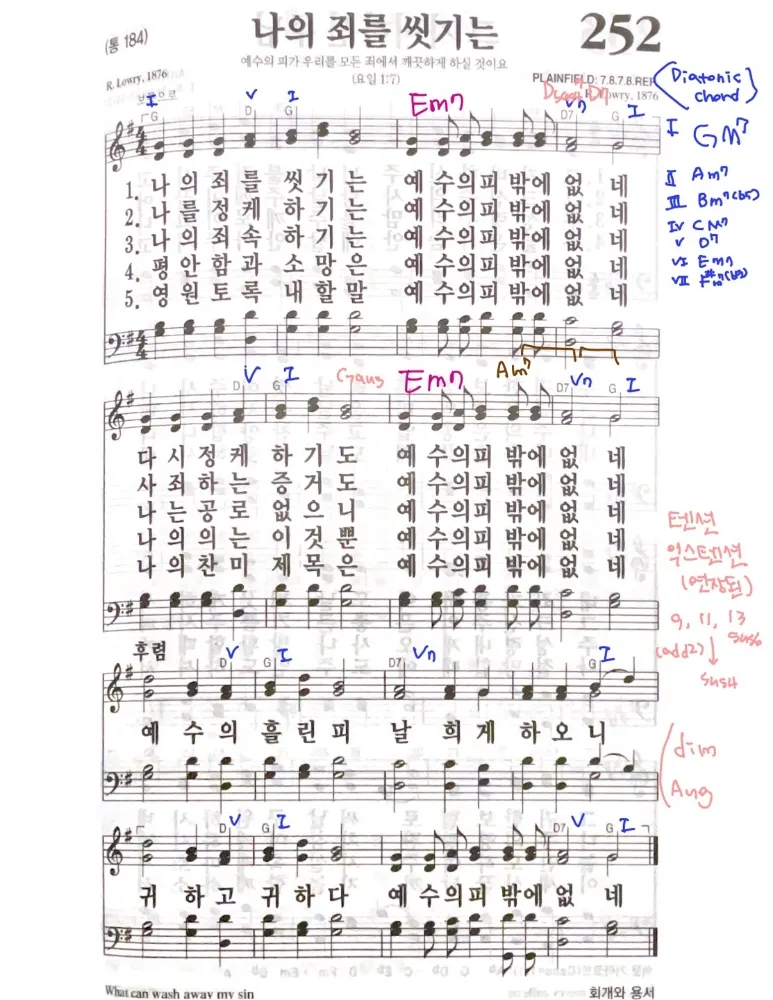 (통 184)
나의 죄를 씻기는
252
예수의 피가 우리를 모든 죄에서 깨끗하게 하실 것이요
(요일 1:7)
R. Lowry, 1876
보통으로
PLAINFIELD: 7.8.7.8.REF
Lowry, 1876
I V I Em7 D7 V7 I
G D G D7 G
1. 나의죄를 씻기는 예수의피밖에없네
2. 나를정케 하기는 예수의피밖에없네
3. 나의죄속 하기는 예수의피밖에없네
4. 평안함과 소망은 예수의피밖에없네
5. 영원토록 내할말 예수의피밖에없네
(Diatonic
chord)
I GM7
II Am7
III Bm7(b5)
IV CM7
V D7
VI Em7
VII F#m7(b5)
V I Gaug Em7 Am7 V7 I
D G D7 G
다시정케 하기도 예수의피밖에없네
사죄하는 증거도 예수의피밖에없네
나는공로 없으니 예수의피밖에없네
나의의는 이것뿐 예수의피밖에없네
나의찬미 제목은 예수의피밖에없네
텐션
익스텐션
(연장된)
9, 11, 13
(add2) sus6
sus4
후렴
V I V7 I
D G D7 G
예수의 흘린피 날희게 하오니
dim
Aug
V I V I
D G D7 G
귀하고 귀하다 예수의피밖에없네
What can wash away my sin
회개와 용서